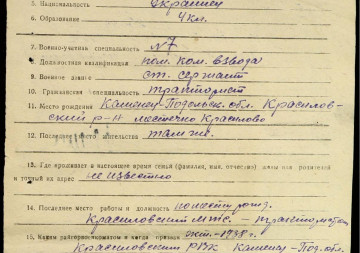 5. Национальность украинец
6. Образование 4 кл.
7. Военно-учетная специальность № 7
8. Должностная квалификация пом. ком. взвода
9. Военное звание ст. сержант
10. Гражданская специальность тракторист
11. Место рождения Каменец-Подольск. обл. Красилов-
ский р-н местечко Красилово
12. Последнее место жительства там же.
13. Где проживает в настоящее время семья (фамилия, имя, отчество) жены или родителей
и точный их адрес неизвестно
14. Последнее место работы и должность по месту рожд.
Красиловский МТС. – тракторист
15. Каким райвоенкоматом и когда призван окт. – 1938 г.
Красиловским РВК Каменец-Под. обл.